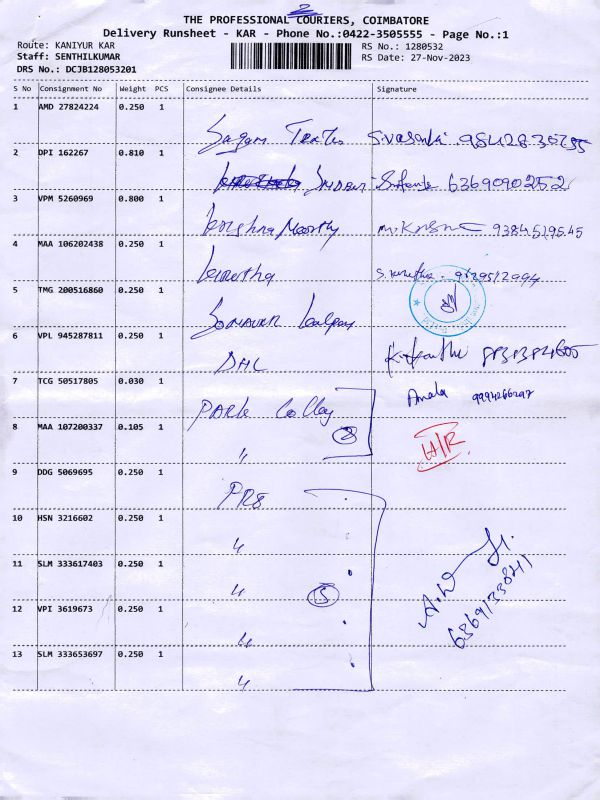 2
THE PROFESSIONAL COURIERS, COIMBATORE
Delivery Runsheet - KAR - Phone No.:0422-3505555 - Page No.:1
Route: KANIYUR KAR RS No.: 1280532
Staff: SENTHILKUMAR RS Date: 27-Nov-2023
DRS No.: DCJB128053201
S No Consignment No Weight PCS Consignee Details Signature
1 AMD 27824224 0.250 1
Sagam S.vasanki
2 DPI 162267 0.810 1
6369090252
3 VPM 5260969 0.800 1
Krishna Moorthy 9384519545
4 MAA 106202438 0.250 1
5 TMG 200516860 0.250 1
6 VPL 945287811 0.250 1
DHL
7 TCG 50517805 0.030 1
PARK College Amala 9994266297
8 MAA 107200337 0.105 1
" 2
9 DDG 5069695 0.250 1
PRS
10 HSN 3216602 0.250 1
"
11 SLM 333617403 0.250 1
" 5
12 VPI 3619673 0.250 1
"
13 SLM 333653697 0.250 1
"